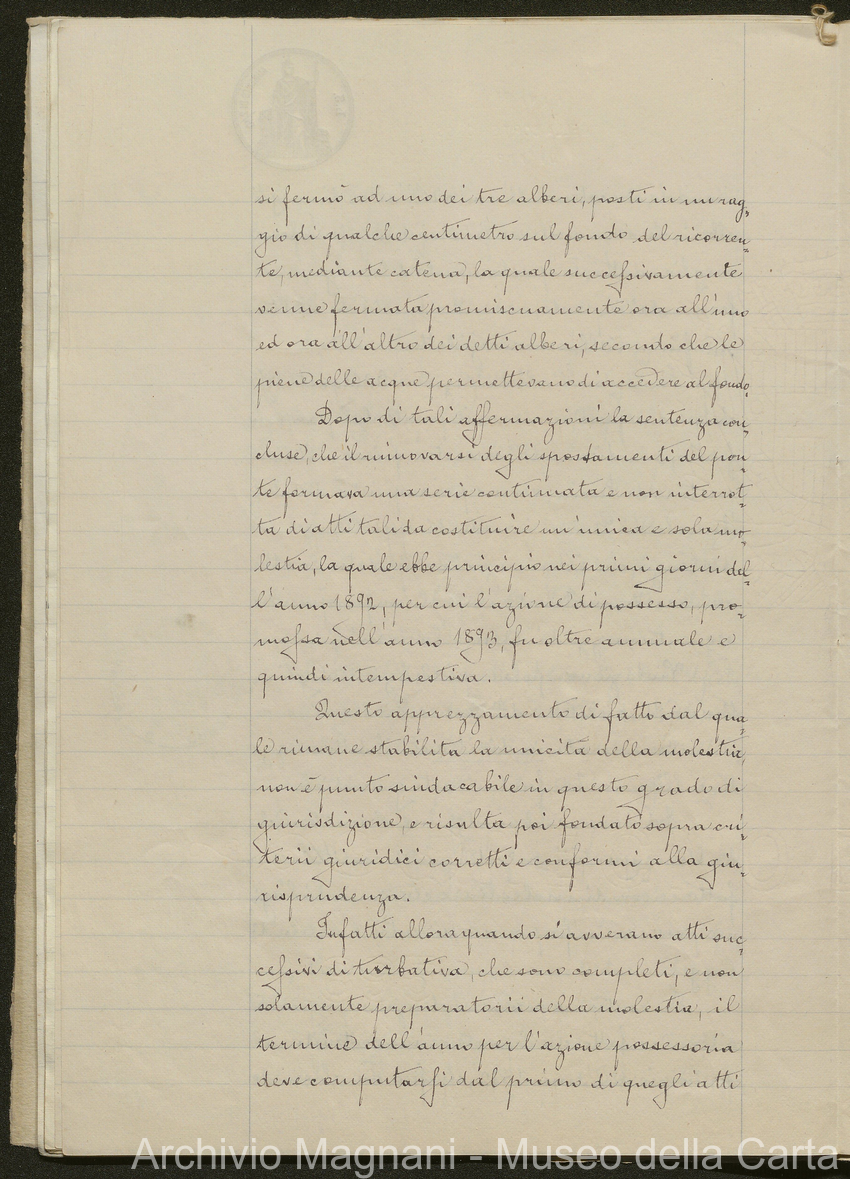 si fermò ad uno dei tre alberi, posti in un rag=
gio di qualche centimetro sul fondo del ricorren=
te, mediante catena, la quale successivamente
venne fermata promiscuamente ora all'uno
ed ora all'altro dei detti alberi, secondo che le
piene delle acque permettevano di accedere al fondo.
Dopo di tali affermazioni la sentenza con=
cluse, che il rinnovarsi degli spostamenti del pon=
te formava una serie continuata e non interrot=
ta di atti tali da costituire un'unica e sola mo=
lestia, la quale ebbe principio nei primi giorni del=
l'anno 1892, per cui l'azione di possesso, pro=
mossa nell'anno 1893, fu oltre annuale e
quindi intempestiva.
Questo apprezzamento di fatto dal qua=
le rimane stabilita la unicità della molestia,
non è punto sindacabile in questo grado di
giurisdizione, e risulta poi fondato sopra cri=
terii giuridici corretti e conformi alla giu=
risprudenza.
Infatti allora quando si avverano atti suc=
cessivi di turbativa, che sono completi, e non
solamente preparatorii della molestia, il
termine dell'anno per l'azione possessoria
deve computarsi dal primo di quegli atti
Archivio Magnani - Museo della Carta